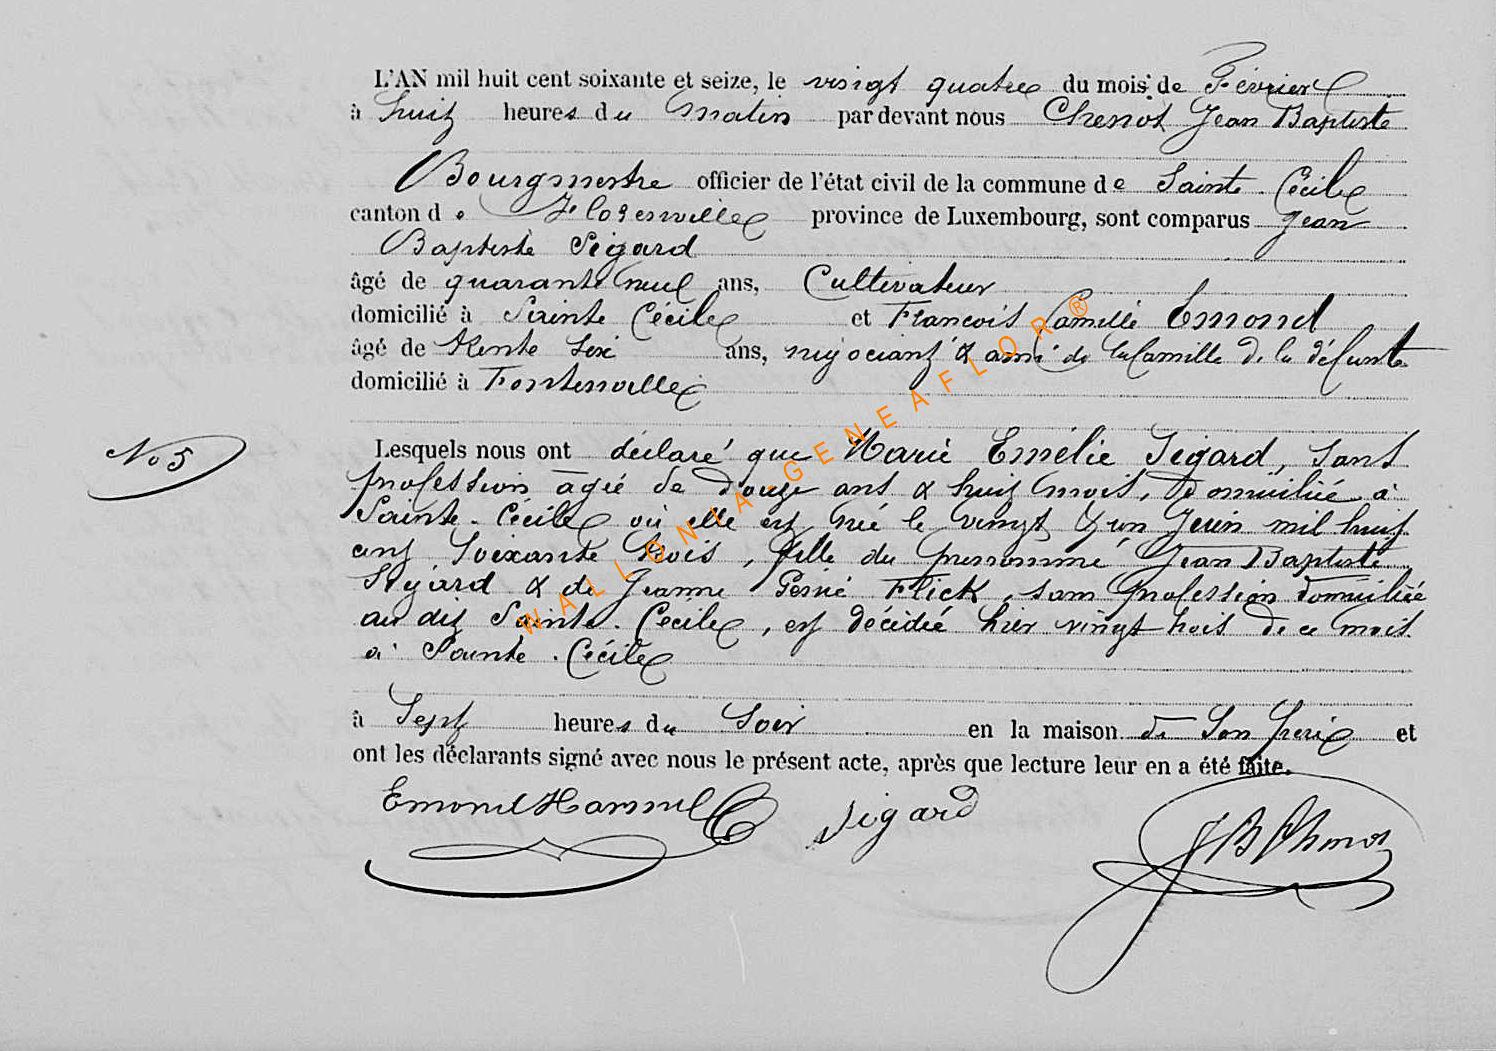 L'AN mil huit cent soixante et seize, le vingt quatre du mois de Février
à huit heures du matin par devant nous Chenot Jean Baptiste
Bourgmestre officier de l'état civil de la commune de Sainte-Cécile
canton de Florenville province de Luxembourg, sont comparus Jean
Baptiste Sigard
âgé de quarante neuf ans, Cultivateur
domicilié à Sainte Cécile et François Camille Emond
âgé de trente six ans, négociant & ami de la famille de la défunte
domicilié à Fontenoille
Lesquels nous ont déclaré que Marie Emélie Sigard, sans
No 5
profession âgée de douze ans & huit mois, domiciliée à
Sainte-Cécile où elle est née le vingt & un Juin mil huit
cent soixante trois, fille du prénommé Jean Baptiste
Sigard & de Jeanne Flick, sans profession domiciliée
au dit Sainte-Cécile, est décédée hier vingt trois de ce mois
à Sainte-Cécile
à Sept heures du Soir en la maison de Son père et
ont les déclarants signé avec nous le présent acte, après que lecture leur en a été faite.
Emond Sigard JBChenot
WALLONIA-GENEAFLOR®